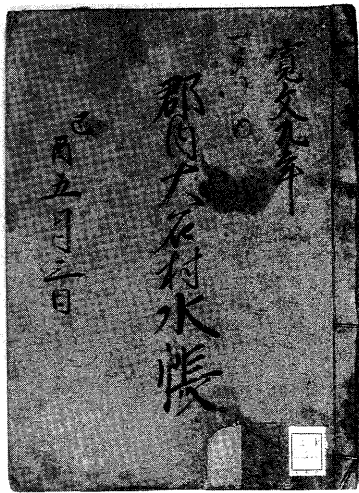 寛文九年
郡内大石村水帳
己
酉五月三日